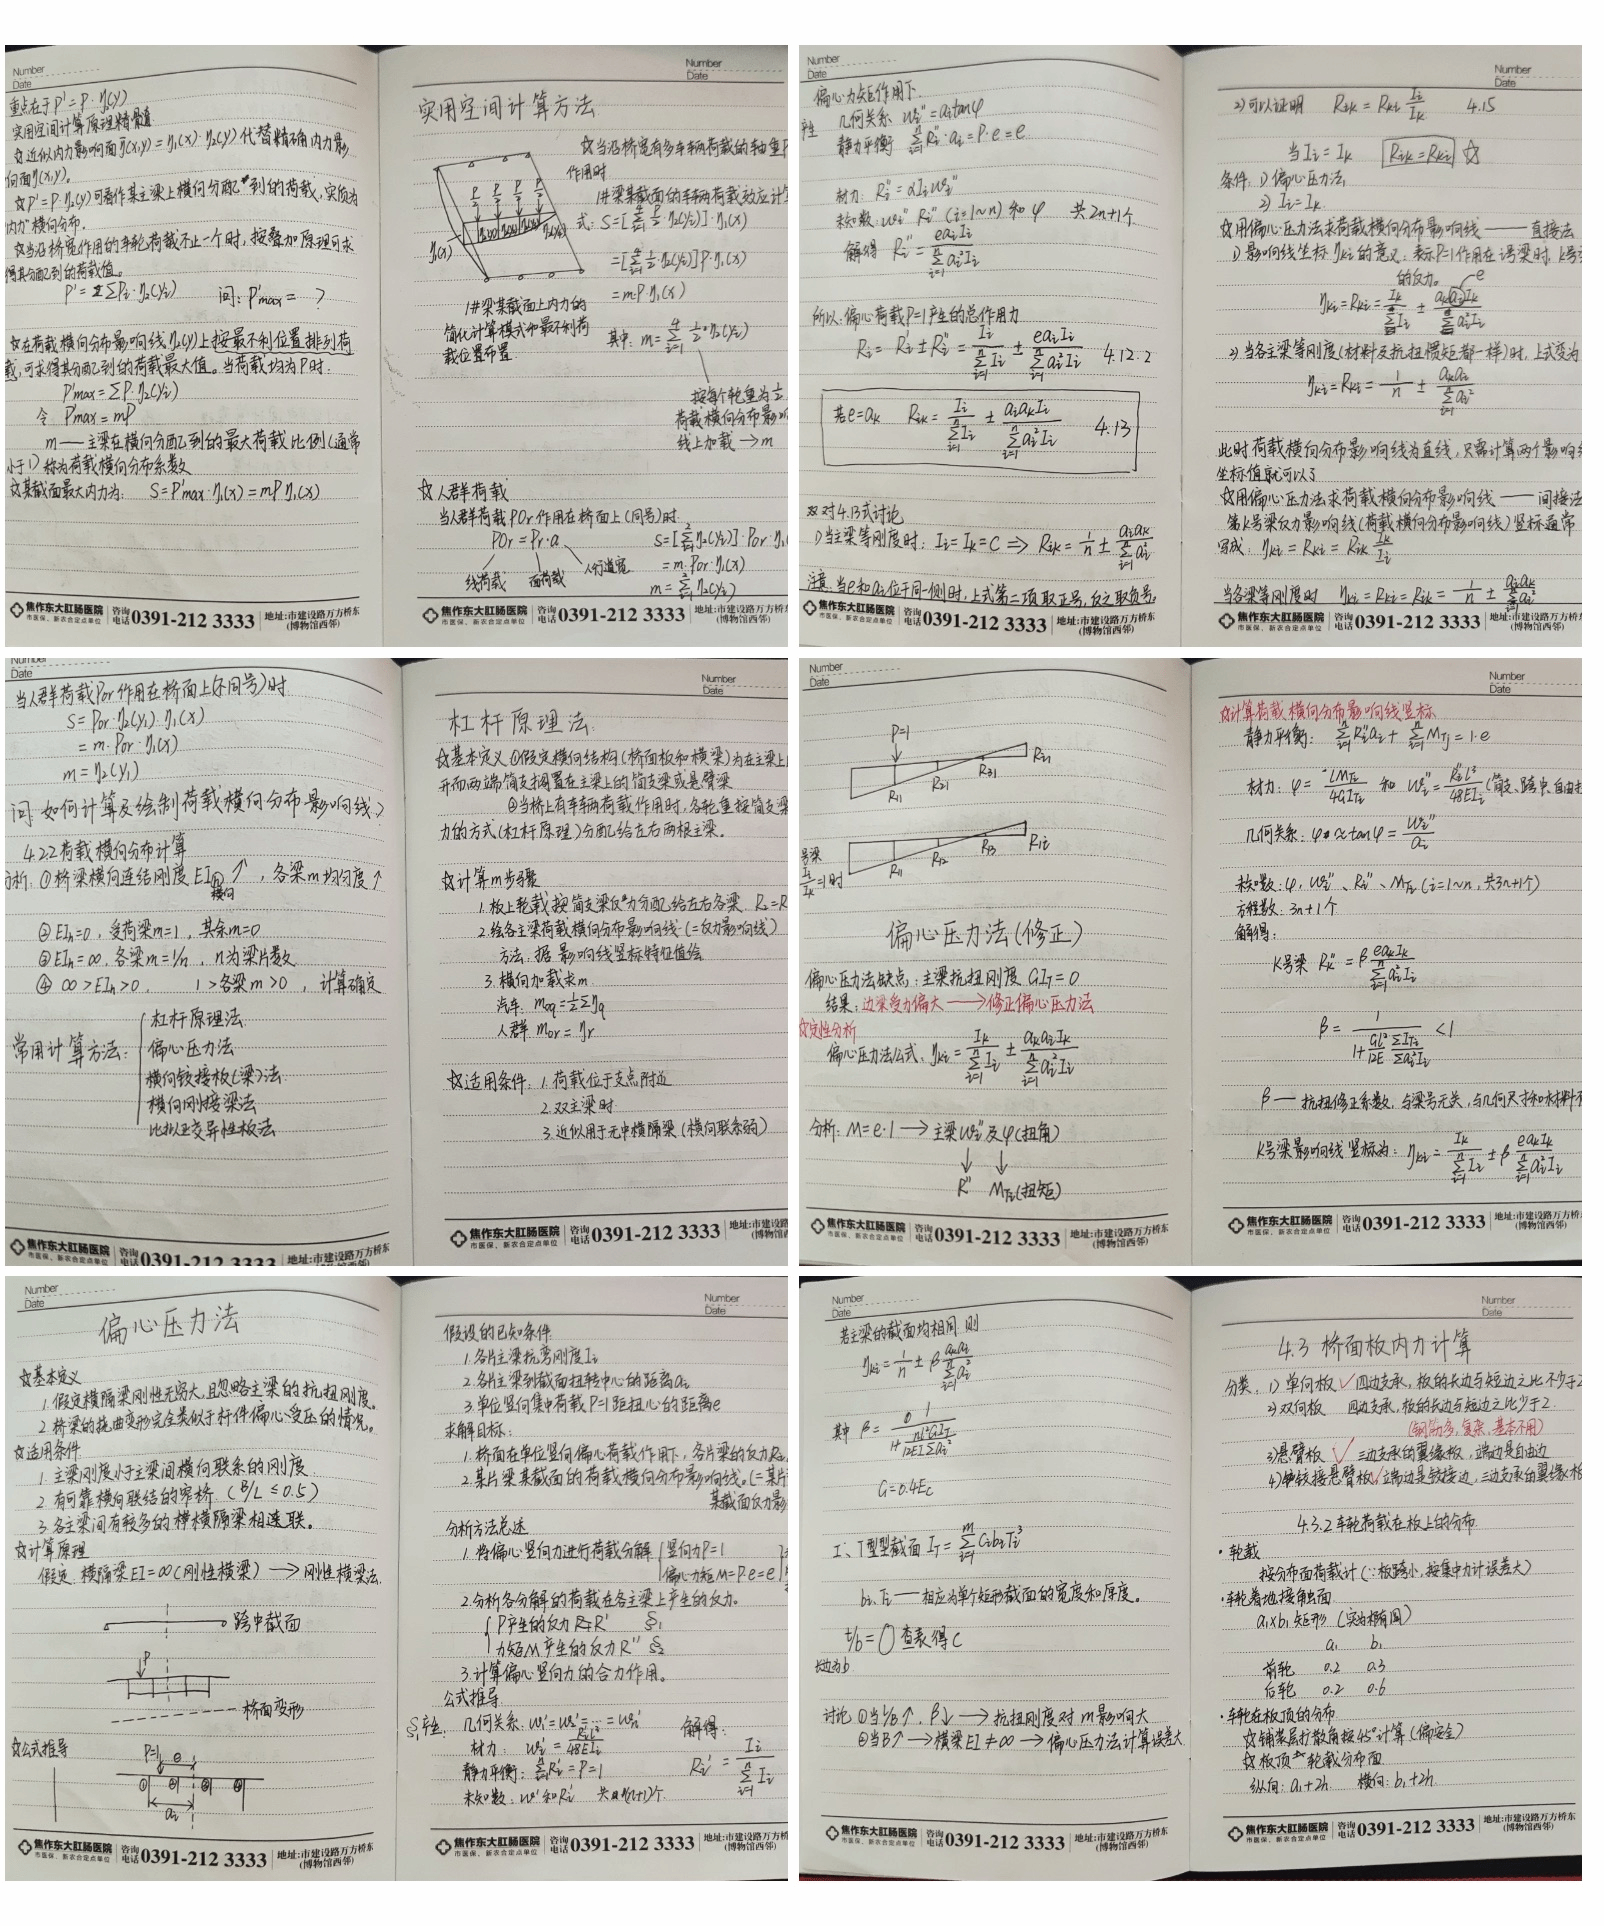 Number
Date
重点在于 P' = P·η₂(y)
实用空间计算原理精髓
☆近似内力影响面η(x,y) = η₁(x)·η₂(y) 代替精确内力影
响面η(x,y)。
☆P' = P·η₂(y)可看作某主梁上横向分配到的荷载,实质为
"内力"横向分布.
☆当沿桥宽作用的车轮荷载不止一个时,按叠加原理可求
得其分配到的荷载值。
P' = ΣPi·η₂(yi) 问: P'max = ?
☆在荷载横向分布影响线η₂(y)上按最不利位置排列荷
载,可求得其分配到的荷载最大值。当荷载均为P时:
P'max = ΣP·η₂(yi)
令 P'max = mP
m — 主梁在横向分配到的最大荷载比例(通常
小于1) 称为荷载横向分布系数
☆某截面最大内力为: S = P'max·η₁(x) = mPη₁(x)
焦作东大肛肠医院 咨询电话 0391-212 3333 地址:市建设路万方桥东
市医保、新农合定点单位 (博物馆西邻)
Number
Date
实用空间计算方法
☆当沿桥宽有多车辆荷载的轴重P
作用时
1#梁某截面的车辆荷载效应计算
式: S = [Σ P/2·η₂(yi)]·η₁(x)
= [Σ 1/2·η₂(yi)]P·η₁(x)
= m·P·η₁(x)
η₁(x)
1#梁某截面上内力的
简化计算模式和最不利荷
载位置布置
其中: m = Σ 1/2·η₂(yi)
按每个轮重为1/2
荷载横向分布影响
线上加载 → m
☆人群荷载
当人群荷载Por作用在桥面上(同号)时
POr = Pr·a
线荷载 面荷载 人行道宽
S = [Ση₂(yi)]·Por·η₁
= m·Por·η₁(x)
m = Ση₂(yi)
焦作东大肛肠医院 咨询电话 0391-212 3333 地址:市建设路万方桥东
市医保、新农合定点单位 (博物馆西邻)
Number
Date
偏心力矩作用下
几何关系 wi'' = ai tanφ
静力平衡 ΣRi''·ai = P·e = e
材力: Ri'' = αIi wi''
未知数: wi'' Ri'' (i=1~n) 和 φ 共2n+1个
解得 Ri'' = eaiIi / Σai²Ii
所以:偏心荷载P=1产生的总作用力
Ri = Ri' + Ri'' = Ii/ΣIi ± eaiIi/Σai²Ii 4.12.2
若e=ak Rik = Ii/ΣIi ± aiakIi/Σai²Ii 4.13
☆对4.13式讨论
1)当主梁等刚度时: Ii = Ik = C ⇒ Rik = 1/n ± aiak/Σai²
注意:当e和ai位于同一侧时,上式第二项取正号,反之取负号。
焦作东大肛肠医院 咨询电话 0391-212 3333 地址:市建设路万方桥东
市医保、新农合定点单位 (博物馆西邻)
Number
Date
2)可以证明 Rik = Rki Ii/Ik 4.15
当Ii = Ik Rik = Rki ☆
条件: 1) 偏心压力法
2) Ii = Ik
☆用偏心压力法求荷载横向分布影响线 —— 直接法
1) 影响线坐标ηki的意义:表示P=1作用在i号梁时,k号
的反力。 e
ηki = Rki = Ik/ΣIi ± akaiIk/Σai²Ii
2)当各主梁等刚度(材料及抗扭惯矩都一样)时,上式变为
ηki = Rki = 1/n ± akai/Σai²
此时荷载横向分布影响线为直线,只需计算两个影响线
坐标值就可以了
☆用偏心压力法求荷载横向分布影响线 —— 间接法
第k号梁反力影响线(荷载横向分布影响线)竖标通常
写成: ηki = Rki = Rik Ik/Ii
当各梁等刚度时 ηki = Rki = Rik = 1/n ± aiak/Σai²
焦作东大肛肠医院 咨询电话 0391-212 3333 地址:市建设路万方桥东
市医保、新农合定点单位 (博物馆西邻)
Number
Date
当人群荷载Por作用在桥面上(不同号)时
S = Por·η₂(y₁)·η₁(x)
= m·Por·η₁(x)
m = η₂(y₁)
问:如何计算及绘制荷载横向分布影响线?
4.2.2荷载横向分布计算
分析: ①桥梁横向连结刚度EIh↑,各梁m均匀度↑
横向
②EIh=0,受荷梁m=1,其余m=0
③EIh=∞,各梁m=1/n,n为梁片数
④ ∞>EIh>0, 1>各梁m>0,计算确定
常用计算方法:
杠杆原理法
偏心压力法
横向铰接板(梁)法
横向刚接梁法
比拟正交异性板法
焦作东大肛肠医院 咨询电话 0391-212 3333 地址:市建设路万方桥东
市医保、新农合定点单位 (博物馆西邻)
Number
Date
杠杆原理法
☆基本定义 ①假定横向结构(桥面板和横梁)为在主梁上
开而两端简支搁置在主梁上的简支梁或悬臂梁
②当桥上有车辆荷载作用时,各轮重按简支梁
力的方式(杠杆原理)分配给左右两根主梁。
☆计算m步骤
1.板上轮载按简支梁反力分配给左右各梁
2.绘各主梁荷载横向分布影响线(=反力影响线)
方法:据影响线竖标特征值绘
3.横向加载求m
汽车: moq = 1/2Σηq
人群: mor = ηr
☆适用条件: 1.荷载位于支点附近
2.双主梁时
3.近似用于无中横隔梁(横向联系弱)
焦作东大肛肠医院 咨询电话 0391-212 3333 地址:市建设路万方桥东
市医保、新农合定点单位 (博物馆西邻)
Number
Date
P=1
R11 R21 R31 Ri1
号梁
Ii/Ik=1时
R11 R12 R13 R1i
偏心压力法(修正)
偏心压力法缺点:主梁抗扭刚度GIT=0
结果:边梁受力偏大 → 修正偏心压力法
☆定性分析
偏心压力法公式: ηki = Ik/ΣIi ± akaiIk/Σai²Ii
分析: M=e·1 → 主梁wi''及φ(扭角)
R'' MTi(扭矩)
焦作东大肛肠医院 咨询电话 0391-212 3333 地址:市建设路万方桥东
市医保、新农合定点单位 (博物馆西邻)
Number
Date
☆计算荷载横向分布影响线竖标
静力平衡: ΣRi''ai + ΣMTi = 1·e
材力: φ = lMTi/4GITi 和 wi'' = Ri''l³/48EIi (简支、跨中、自由扭
几何关系: φ ≈ tanφ = wi''/ai
未知数: φ, wi''、Ri''、MTi (i=1~n, 共3n+1个)
方程数: 3n+1个
解得:
K号梁 Rk'' = β eakIk/Σai²Ii
β = 1/(1 + Gl²/12E · ΣITi/Σai²Ii) < 1
β — 抗扭修正系数,与梁号无关,与几何尺寸和材料
K号梁影响线竖标为: ηki = Ik/ΣIi ± β eakIk/Σai²Ii
焦作东大肛肠医院 咨询电话 0391-212 3333 地址:市建设路万方桥东
市医保、新农合定点单位 (博物馆西邻)
Number
Date
偏心压力法
☆基本定义
1.假定横隔梁刚性无穷大,且忽略主梁的抗扭刚度。
2.桥梁的挠曲变形完全类似于杆件偏心受压的情况。
☆适用条件
1.主梁刚度小于主梁间横向联系的刚度
2.有可靠横向联结的窄桥 (B/L ≤ 0.5)
3.各主梁间有较多的横隔梁相连联。
☆计算原理
假定:横隔梁EI=∞(刚性横梁) → 刚性横梁法
跨中截面
P
桥面变形
☆公式推导
P=1 e
① ② ③ ④
ai
焦作东大肛肠医院 咨询电话 0391-212 3333 地址:市建设路万方桥东
市医保、新农合定点单位 (博物馆西邻)
Number
Date
假设的已知条件
1.各片主梁抗弯刚度Ii
2.各片主梁到截面扭转中心的距离ai
3.单位竖向集中荷载P=1距扭心的距离e
求解目标:
1.桥面在单位竖向偏心荷载作用下,各片梁的反力Ri
2.某片梁某截面的荷载横向分布影响线。(=某片
某截面反力影
分析方法总述
1.将偏心竖向力进行荷载分解 竖向力P=1
偏心力矩M=P·e=e
2.分析各分解的荷载在各主梁上产生的反力。
P产生的反力R' §1
力矩M产生的反力R'' §2
3.计算偏心竖向力的合力作用。
公式推导
§1产生: 几何关系: w₁'=w₂'=…=wn' 解得:
材力: wi' = Ri'l³/48EIi
静力平衡: ΣRi'=P=1 Ri' = Ii/ΣIi
未知数: w'和Ri' 共(n+1)个
焦作东大肛肠医院 咨询电话 0391-212 3333 地址:市建设路万方桥东
市医保、新农合定点单位 (博物馆西邻)
Number
Date
若主梁的截面均相同,则
ηki = 1/n ± β akai/Σai²
其中 β = 1/(1 + nl²GIT/12EIΣai²)
G=0.4Ec
I、T型型截面 IT = ΣCibiTi³
bi、Ti — 相应为单个矩形截面的宽度和厚度。
t/b = 查表得C
长边为b
讨论 ①当l/B↑,β↓ → 抗扭刚度对m影响大
②当B↑ → 横梁EI≠∞ → 偏心压力法计算误差大
焦作东大肛肠医院 咨询电话 0391-212 3333 地址:市建设路万方桥东
市医保、新农合定点单位 (博物馆西邻)
Number
Date
4.3 桥面板内力计算
分类: 1)单向板✓ 四边支承,板的长边与短边之比不少于2
2)双向板 四边支承,板的长边与短边之比少于2
(钢筋多,复杂,基本不用)
3)悬臂板✓ 三边支承的翼缘板,端边是自由边
4)铰接悬臂板✓端边是铰接边,三边支承的翼缘板
4.3.2车轮荷载在板上的分布
·轮载
按分布面荷载计(∵板跨小,按集中力计误差大)
·车轮着地接触面
a₁×b₁矩形 (实为椭圆)
a₁ b₁
前轮 0.2 0.3
后轮 0.2 0.6
·车轮在板顶的分布
☆铺装层扩散角按45°计算(偏安全)
☆板顶轮载分布面
纵向: a₁+2h 横向: b₁+2h
焦作东大肛肠医院 咨询电话 0391-212 3333 地址:市建设路万方桥东
市医保、新农合定点单位 (博物馆西邻)